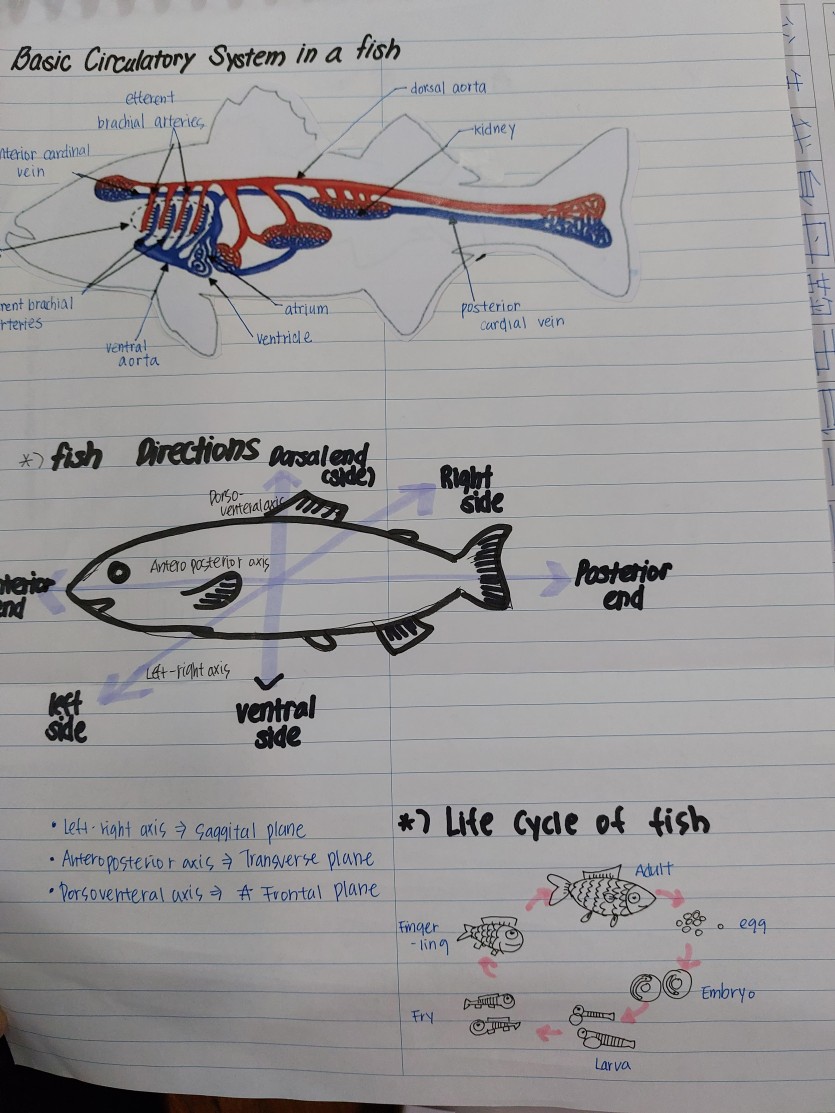 Basic Circulatory System in a fish
efferent
brachial arteries
dorsal aorta
kidney
nterior cardinal
vein
rent brachial
rteries
ventral
aorta
atrium
ventricle
posterior
cardial vein
*) fish Directions
Dorsal end
(side)
Right
side
Dorso-
venteral axis
Antero posterior axis
nterior
nd
Posterior
end
Left-right axis
left
side
ventral
side
• Left-right axis ⇒ saggital plane
• Anteroposterior axis ⇒ Transverse plane
• Dorsoventeral axis ⇒ Frontal plane
*) Life Cycle of fish
Adult
egg
Embryo
Larva
Fry
Finger
-ling